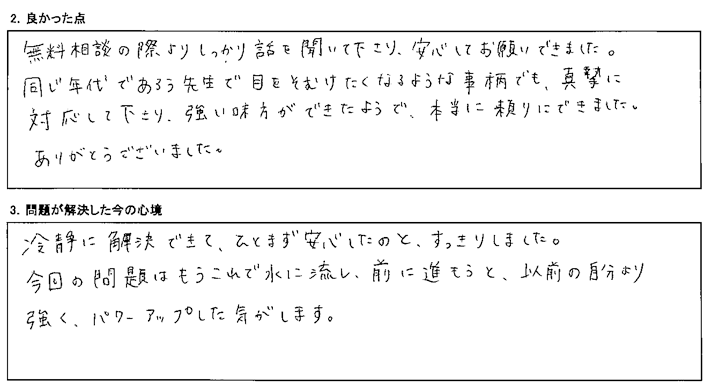 2. 良かった点
無料相談の際よりしっかり話を聞いて下さり、安心してお願いできました。
同じ年代であろう先生で目をそむけたくなるような事柄でも、真摯に
対応して下さり、強い味方ができたようで、本当に頼りにできました。
ありがとうございました。
3. 問題が解決した今の心境
冷静に解決できて、ひとまず安心したのと、すっきりしました。
今回の問題はもうこれで水に流し、前に進もうと、以前の自分より
強く、パワーアップした気がします。